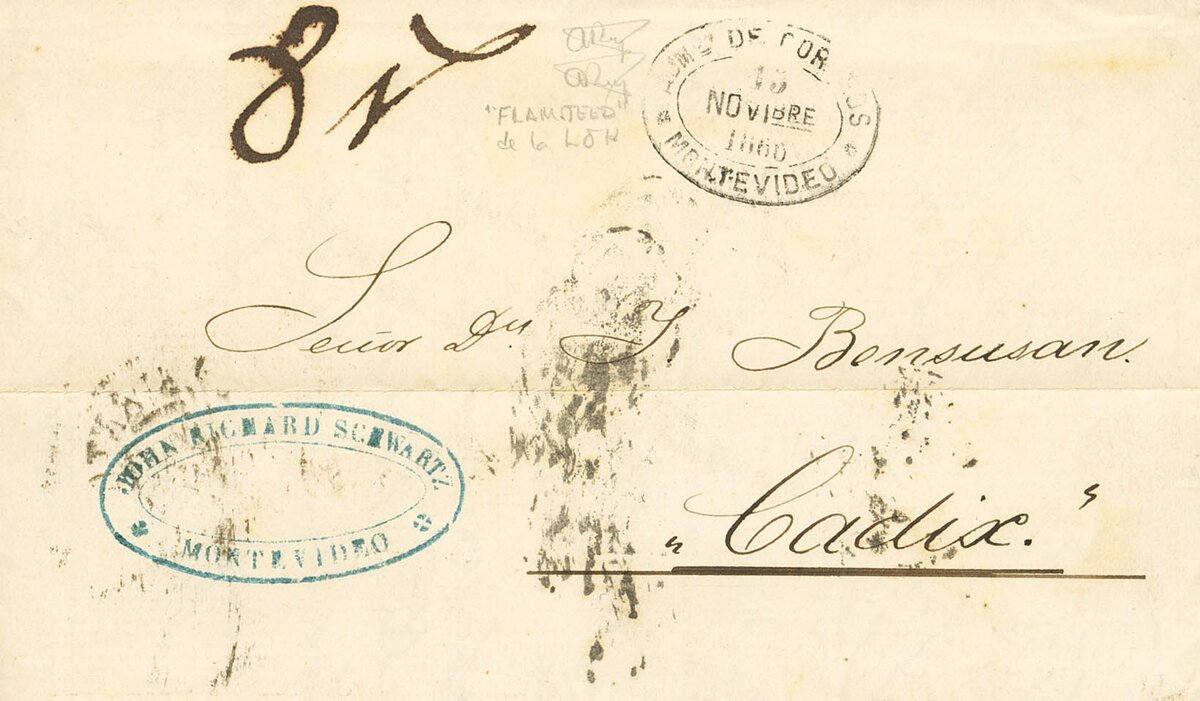 8 r
"FLAMSTEED"
de la LOH
ADMON DE CORREOS
15
NOVIBRE
1860
MONTEVIDEO
Señor Dn J. Bensusan.
JOHN RICHARD SCHWARTZ
MONTEVIDEO
"Cadix."